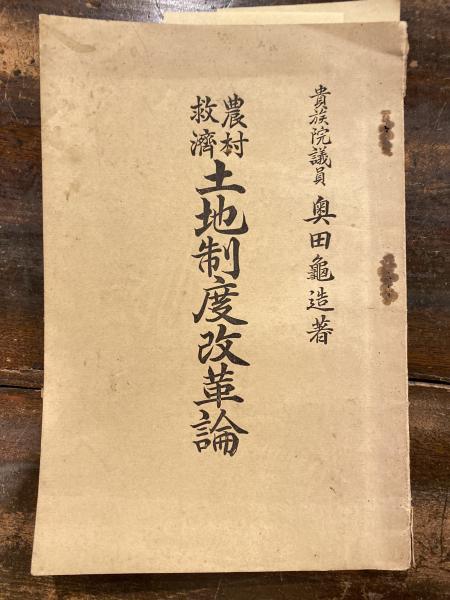 貴族院議員 奥田龜造著
農村救濟 土地制度改革論